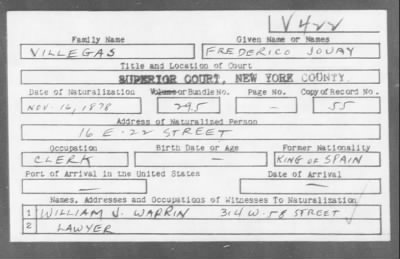 LV422
Family Name Given Name or Names
VILLEGAS FREDERICO JOUAY
Title and Location of Court
SUPERIOR COURT, NEW YORK COUNTY.
Date of Naturalization Volume or Bundle No. Page No. Copy of Record No.
NOV. 16, 1878 295 — 55
Address of Naturalized Person
16 E-22 STREET
Occupation Birth Date or Age Former Nationality
CLERK — KING OF SPAIN
Port of Arrival in the United States Date of Arrival
— —
Names, Addresses and Occupations of Witnesses To Naturalization
1 WILLIAM J. WARRIN 314 W-58 STREET
2 LAWYER